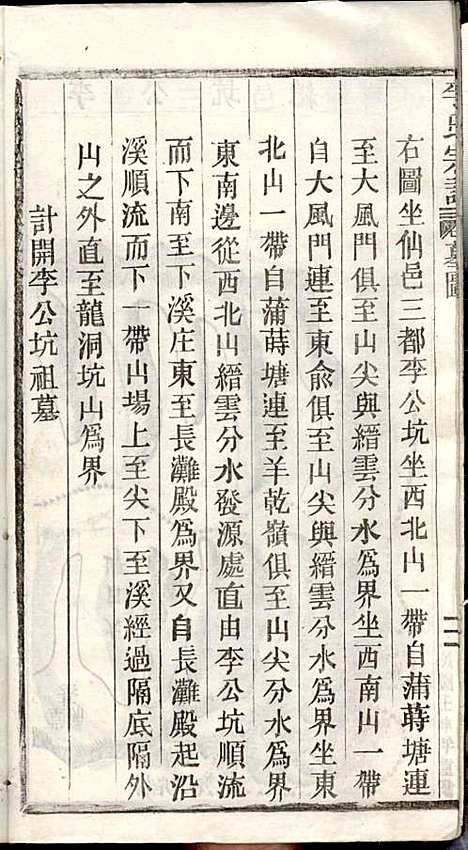 右圖坐仙邑三都李公坑坐西北山一帶自蒲蒔塘連
至大風門俱至山尖與縉雲分水爲界坐西南山一帶
自大風門連至東兪俱至山尖與縉雲分水爲界坐東
北山一帶自蒲蒔塘連至羊乾嶺俱至山尖分水爲界
東南邊從西北山縉雲分水發源處直由李公坑順流
而下南至下溪庄東至長灘殿爲界又自長灘殿起沿
溪順流而下一帶山場上至尖下至溪經過隔底隔外
山之外直至龍洞坑山爲界
計開李公坑祖墓